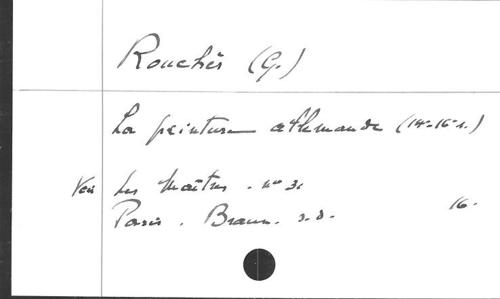 Rouchès (G.)
La peinture allemande (14e-16e s.)
Voir Les Maîtres. no 31
Paris. Braun. s.d. 16.